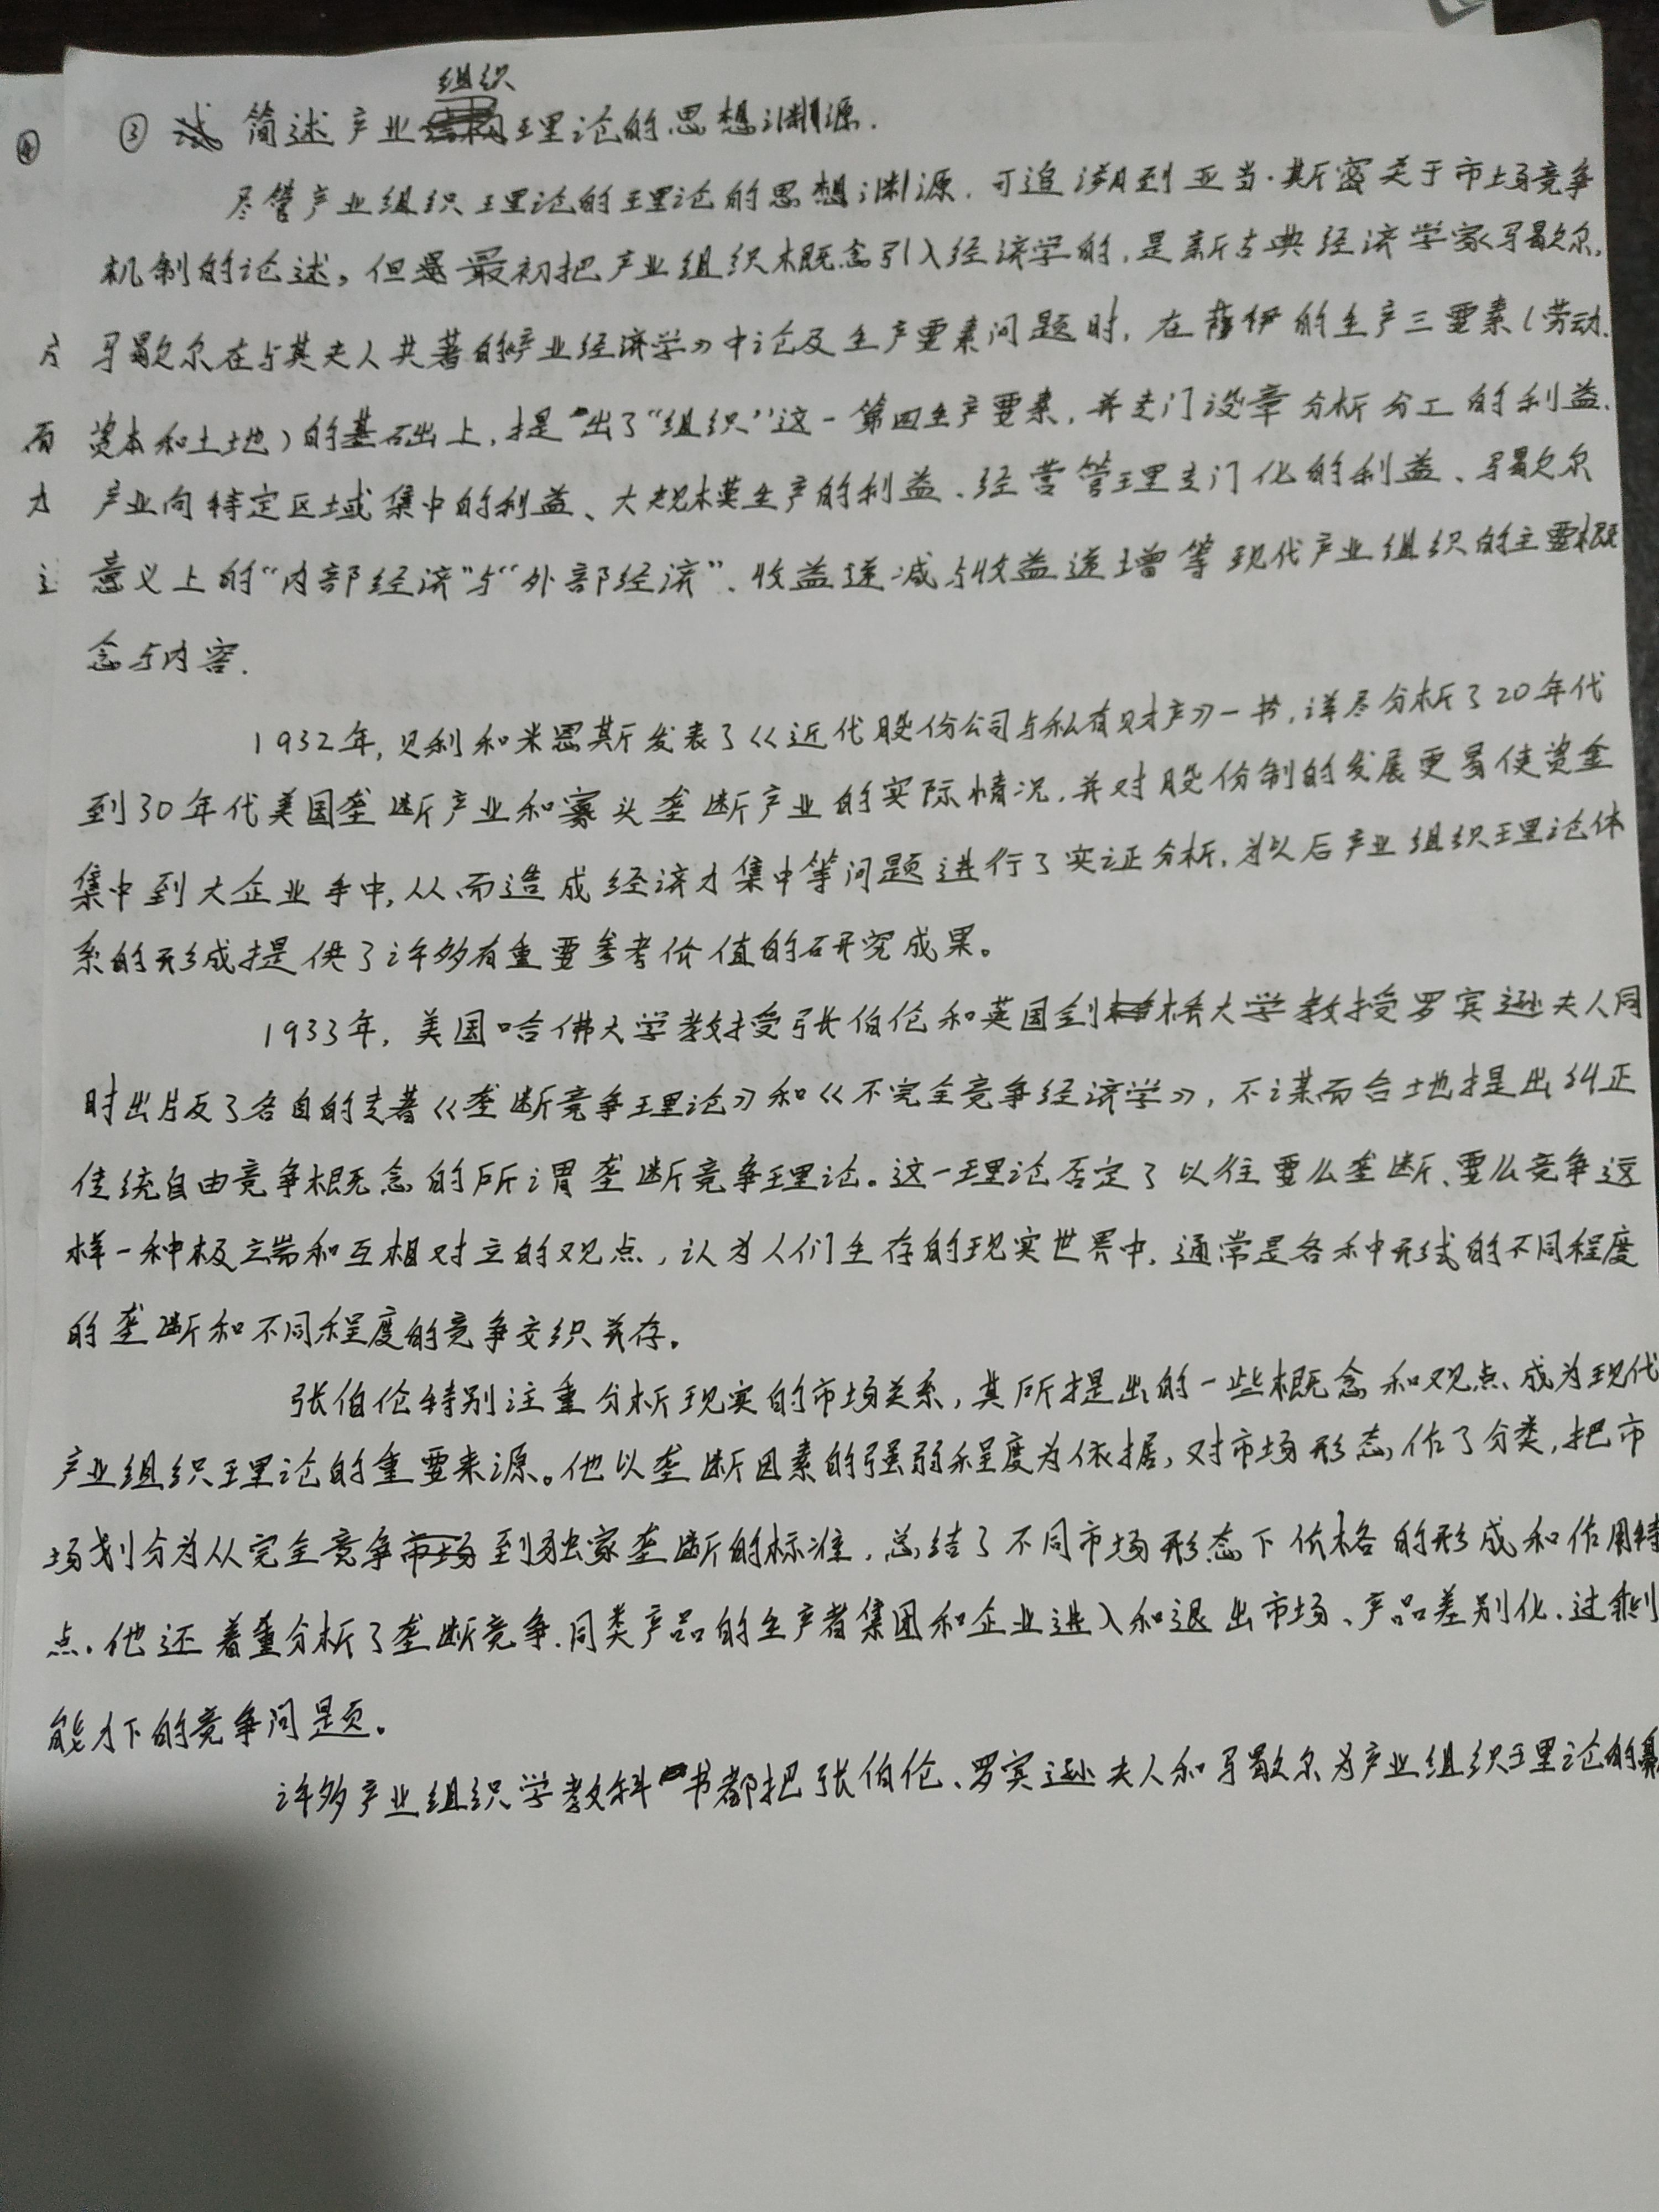 ③ 简述产业组织理论的思想渊源.
尽管产业组织理论的理论的思想渊源.可追溯到亚当·斯密关于市场竞争
机制的论述。但是最初把产业组织概念引入经济学的,是新古典经济学家马歇尔.
马歇尔在与其夫人共著的《产业经济学》中论及生产要素问题时,在萨伊的生产三要素(劳动.
资本和土地)的基础上,提出了“组织”这一第四生产要素,并专门设章分析分工的利益、
产业向特定区域集中的利益、大规模生产的利益、经营管理专门化的利益、马歇尔
意义上的“内部经济”与“外部经济”、收益递减与收益递增等现代产业组织的主要概
念与内容.
1932年,贝利和米恩斯发表了《近代股份公司与私有财产》一书,详尽分析了20年代
到30年代美国垄断产业和寡头垄断产业的实际情况,并对股份制的发展更易使资金
集中到大企业手中,从而造成经济力集中等问题进行了实证分析,为以后产业组织理论体
系的形成提供了许多有重要参考价值的研究成果。
1933年,美国哈佛大学教授张伯伦和英国剑桥大学教授罗宾逊夫人同
时出版了各自的专著《垄断竞争理论》和《不完全竞争经济学》,不谋而合地提出纠正
传统自由竞争概念的所谓垄断竞争理论。这一理论否定了以往要么垄断、要么竞争这
样一种极端和互相对立的观点,认为人们生存的现实世界中,通常是各种形式的不同程度
的垄断和不同程度的竞争交织并存。
张伯伦特别注重分析现实的市场关系,其所提出的一些概念和观点成为现代
产业组织理论的重要来源。他以垄断因素的强弱程度为依据,对市场形态作了分类,把市
场划分为从完全竞争到独家垄断的标准,总结了不同市场形态下价格的形成和作用特
点.他还着重分析了垄断竞争.同类产品的生产者集团和企业进入和退出市场、产品差别化.过剩
能力下的竞争问题。
许多产业组织学教科书都把张伯伦、罗宾逊夫人和马歇尔为产业组织理论的鼻
④
方
而
力